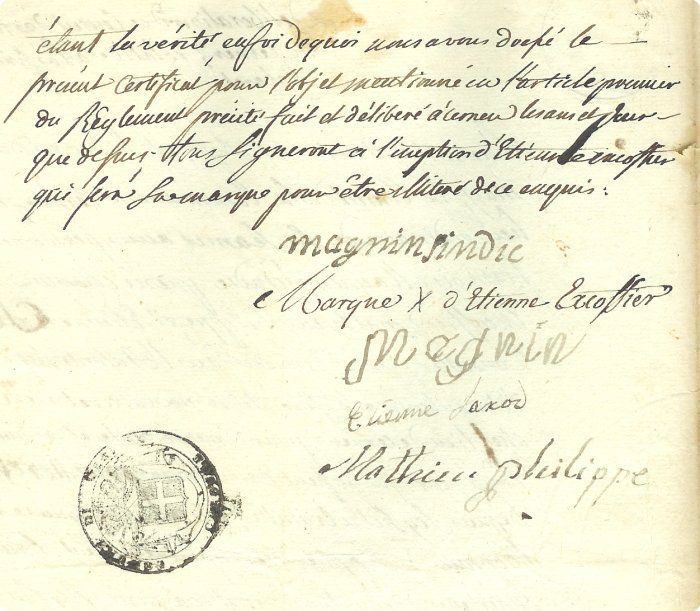 étant la vérité en foi de quoi nous avons dressé le
présent Certificat pour l'objet mentionné en l'article premier
du Règlement précité fait et délibéré à les ans et jour
que dessus. Tous signeront à l'exception d'Etienne excoffier
qui fera sa marque pour être illitéré de ce enquis :
magnin sindic
Marque X d'Etienne Excoffier
Magnin
Etienne Saxod
Mathieu philippe